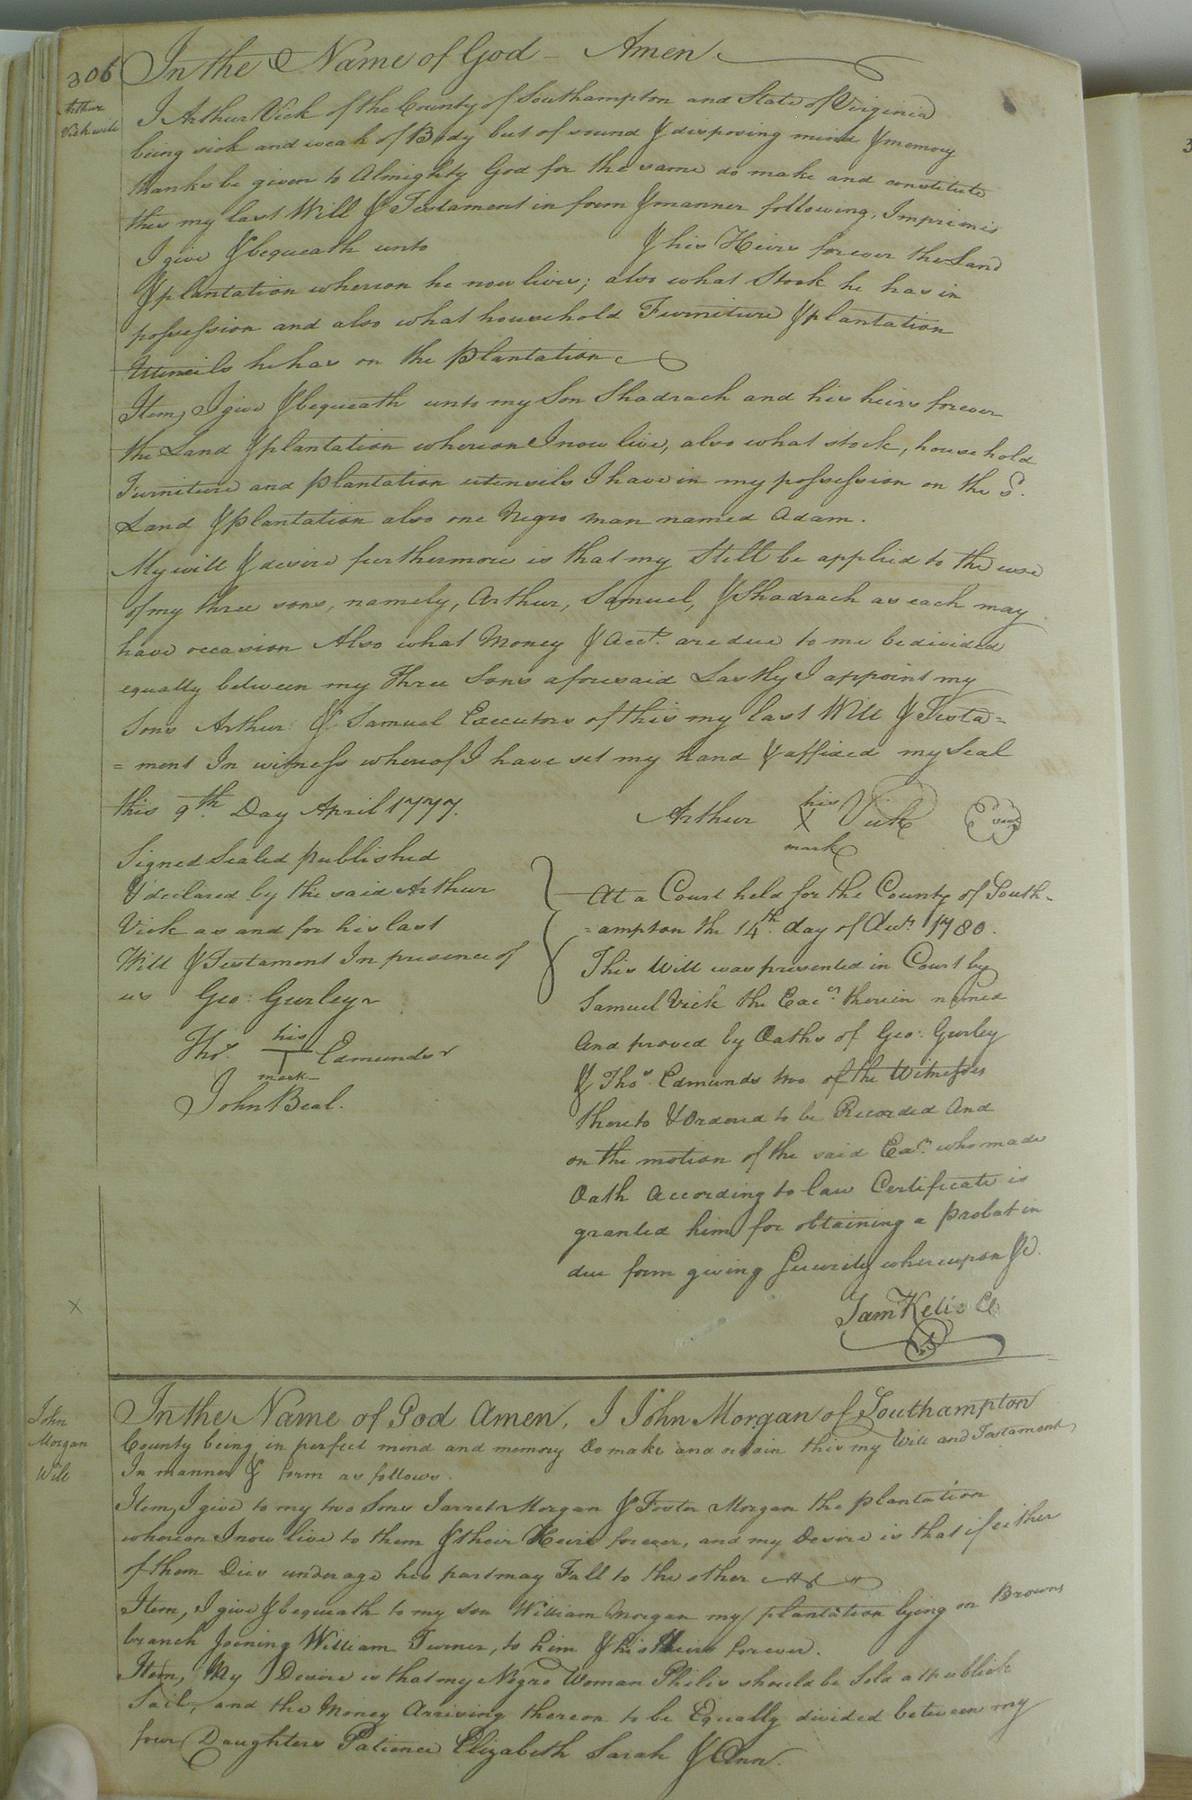 306
Arthur
Vick will
In the Name of God - Amen
I Arthur Vick of the County of Southampton and State of Virginia
being sick and weak of Body but of sound & disposing mind & memory
thanks be given to Almighty God for the same do make and constitute
this my last Will & Testament in form & manner following, Imprimis
I give & bequeath unto & his Heirs forever the Land
& plantation whereon he now lives; also what Stock he has in
possession and also what household Furniture & plantation
Utencils he has on the plantation
Item, I give & bequeath unto my Son Shadrach and his heirs forever
the Land & plantation whereon I now live, also what stock, household
Furniture and plantation utensils I have in my possession on the S.
Land & plantation also one Negro man named Adam.
My will & desire furthermore is that my Still be applied to the use
of my three sons, namely, Arthur, Samuel, & Shadrach as each may
have occasion Also what Money & Acct. are due to me be divided
equally between my three Sons aforesaid Lastly I appoint my
Sons Arthur & Samuel Executors of this my last Will & Testa=
= ment In witness whereof I have set my hand & affixed my Seal
this 9th. Day April 1777.
Arthur his X mark Vick
Signed Sealed published
& declared by the said Arthur
Vick as and for his last
Will & Testament In presence of
us Geo: Gurley
Thos. his T mark Edmunds
John Beal.
At a Court held for the County of South-
=ampton the 14th. day of 1780.
This Will was presented in Court by
Samuel Vick the Exec. therein named
And proved by Oaths of Geo: Gurley
& Thos. Edmunds two of the Witnesses
thereto & Ordered to be Recorded And
on the motion of the said Exr. who made
Oath According to law Certificate is
granted him for obtaining a Probat in
due form giving Security whereupon &c.
Sam Kello Cl
X
John
Morgan
Will
In the Name of God Amen, I John Morgan of Southampton
County being in perfect mind and memory Do make and ordain this my Will and Testament,
In manner & form as follows.
Item, I give to my two Sons Jarret Morgan & Foster Morgan the plantation
whereon I now live to them & their Heirs forever, and my Desire is that if either
of them Dies underage his part may Fall to the other
Item, I give & bequeath to my son William Morgan my plantation lying on Browns
branch Joining William Turner, to him & his Heirs forever.
Item, My Desire is that my Negro Woman Philis should be Sold at publick
Sail, and the Money Arriving thereon to be Equally divided between my
four Daughters Patience Elizabeth Sarah & Ann.